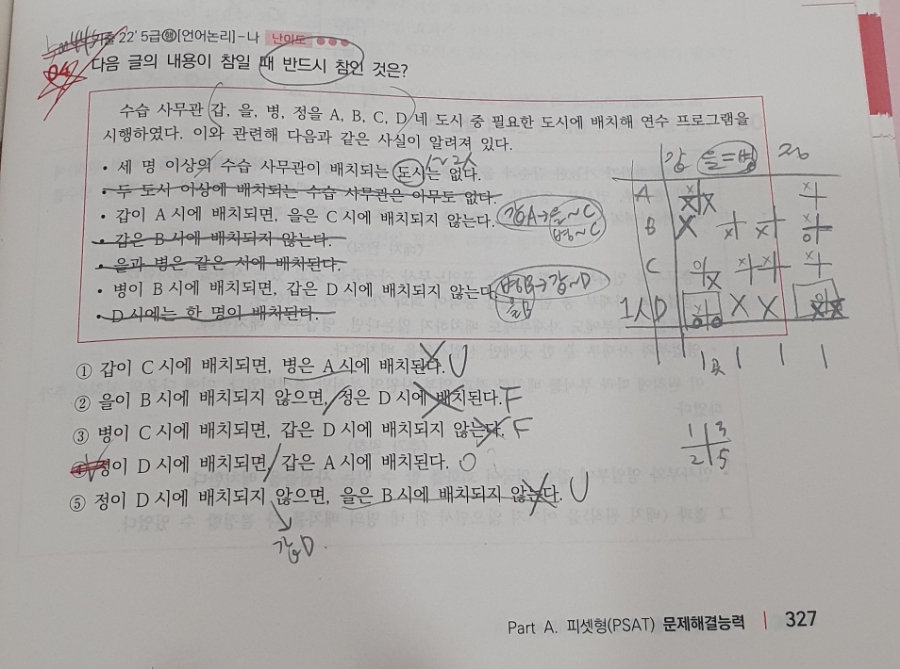 기출 22' 5급㉾[언어논리]-나 난이도
다음 글의 내용이 참일 때 반드시 참인 것은?
수습 사무관 갑, 을, 병, 정을 A, B, C, D 네 도시 중 필요한 도시에 배치해 연수 프로그램을
시행하였다. 이와 관련해 다음과 같은 사실이 알려져 있다.
• 세 명 이상의 수습 사무관이 배치되는 도시는 없다.
• 두 도시 이상에 배치되는 수습 사무관은 아무도 없다.
• 갑이 A시에 배치되면, 을은 C시에 배치되지 않는다.
• 갑은 B시에 배치되지 않는다.
• 을과 병은 같은 시에 배치된다.
• 병이 B시에 배치되면, 갑은 D시에 배치되지 않는다
• D시에는 한 명이 배치된다.
1~2人
갑A→을~C
병~C
병B→갑~D
을B
갑 을=병 정
A
B
C
1人D
1 1 1 1
1 3
2 5
① 갑이 C시에 배치되면, 병은 A시에 배치된다. U
② 을이 B시에 배치되지 않으면, 정은 D시에 배치된다. F
③ 병이 C시에 배치되면, 갑은 D시에 배치되지 않는다. F
④ 정이 D시에 배치되면, 갑은 A시에 배치된다. O
⑤ 정이 D시에 배치되지 않으면, 을은 B시에 배치되지 않는다. U
갑D.
Part A. 피셋형(PSAT) 문제해결능력 327